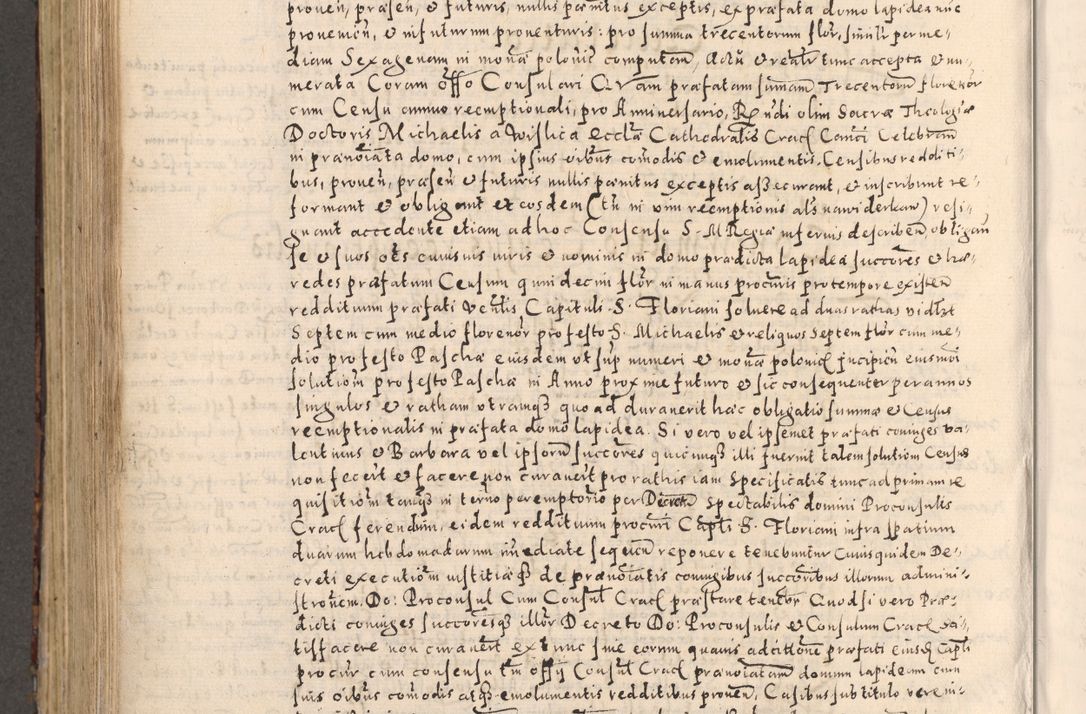 proven, præsen, & futuris, nullis pœnitus exceptis, ex præfata domo lapidea nuc
provenien, & in futurum proventuris: pro summa trecentorum flor, similr per me-
diam Sexagenam in mona polonic computan, Actu & realr tunc accepta & nu-
merata Coram offo Consulari Quam præfatam sumam Trecentoru florenor
cum Censu annuo reemptionali, pro Anniversario, Rndi olim Sacræ Theologiæ
Doctoris Michaelis a Wislica ecclæ Cathedralis Crac Canci Celebran
in prænoiata domo, cum ipsius oibus comodis & emolumentis. Censibus redditi-
bus, proven, præsen & futuris nullis pœnitus exceptis assecurant, & inscribunt re-
formant & obligant et eosdem (tn in vim reemptionis als nawiderkaw) resi-
gnant accedente etiam ad hoc Consensu S. M Regiæ inferius describen, obligan
se & suos oes cuiusuis iuris & nominis in domo prædicta lapidea succores & hæ-
redes præfatum Censum quindecim flor in manus procuris pro tempore existen
reddituum præfati Venlis Capituli S. Floriani soluere ad duas rathas vidlzt
Septem cum medio florenor pro festo S. Michaelis & reliquos septem flor cum me-
dio pro festo Paschæ eiusdem ut sup numeri & mona polonic incipien eiusmoi
solutiom pro festo Paschæ in Anno proxime futuro & sic consequenter per annos
singulos & ratham utramqz quoad duraverit hæc obligatio summæ & Census
reemptionalis in præfata domo lapidea. Si vero vel ipsemet præfati coniuges Va-
lentinus & Barbara vel ipsorum succores quicunqz illi fuerint talem solutiom Census
non fecerit & facere non curaverit pro rathis iam specificatis tunc ad primam re
quisitiom tanqz in terno peremptorio per Decretu Spectabilis domini Proconsulis
Crac ferendum, eidem reddituum procuri Capli S. Floriani infra spatium
duarum hebdomadarum imediate sequen reponere tenebuntur Cuiusquidem De-
creti executiom iustitiaqz de prænoiatis coniugibus succoribus illorum admini-
stronem. Do: Proconsul Cum Consul Crac præstare tenebr Quod si vero Præ-
dicti coniuges succoresqz illor Decreto Do: Proconsulis & Consulum Crac sa-
tisfacere non curaverit ex tunc sine eorum quavis adcitione præfati eiusd Capli
procur cum consensu tn offij Consul Crac prænoiatam domum lapideam cum
suis oibus comodis atqz emolumentis redditibus proven, Casibus sub titulo vere in-